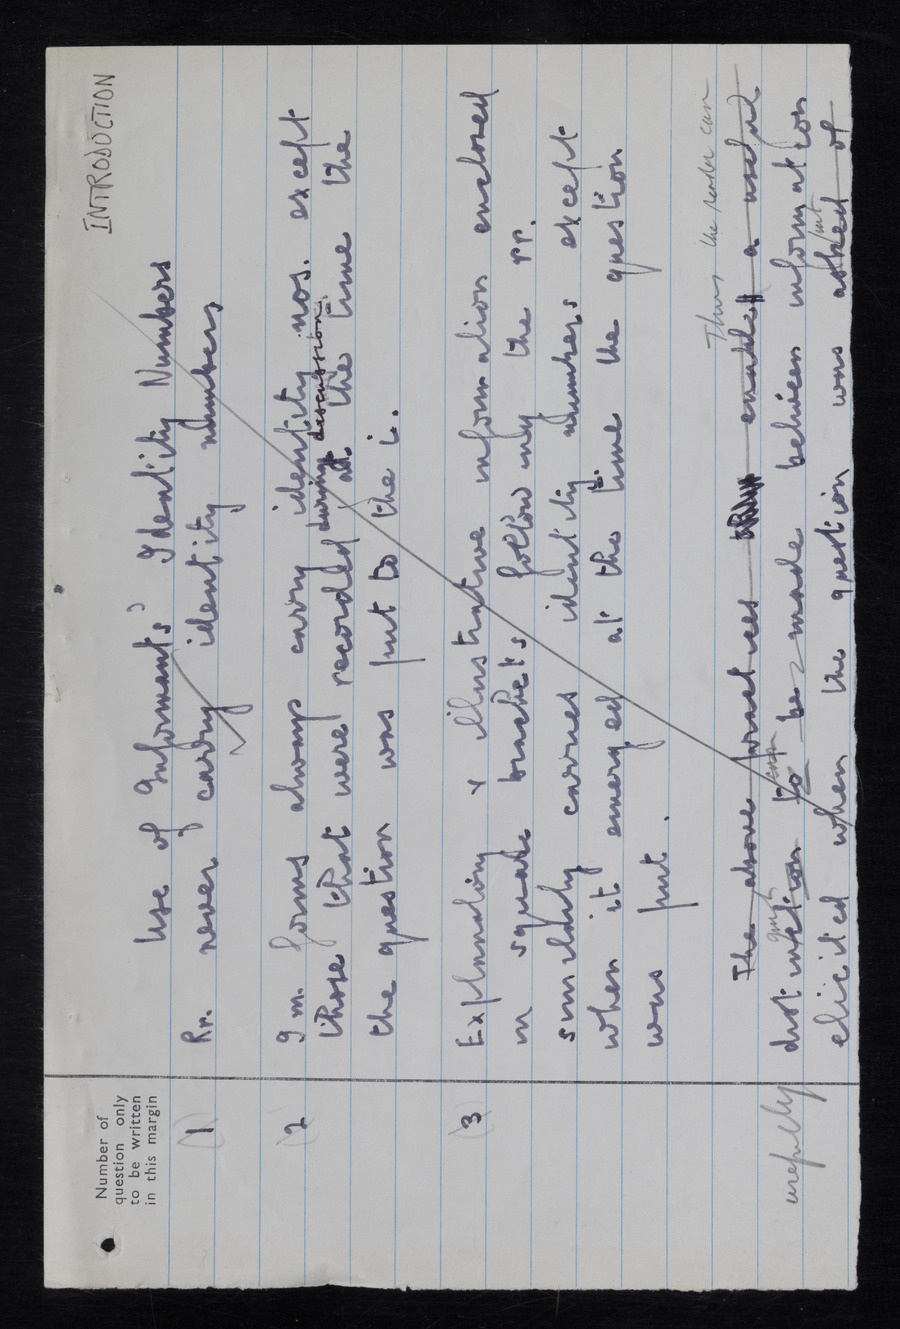 INTRODUCTION
Number of
question only
to be written
in this margin
Use of Informants' Identity Numbers
(1) Rr. never carry identity numbers
(2) I m. forms always carry identity nos. except
during discussion,
those that were recorded at the time the
the question was put to the i.
(3) Explanatory & illustrative information enclosed
in square brackets follow only the rr.
similarly carries identity numbers except
when it emerged at the time the question
was put.
Thus the reader can
The above practices enables a useful
usefully distinction to be made between information
put
elicited when the question was asked of